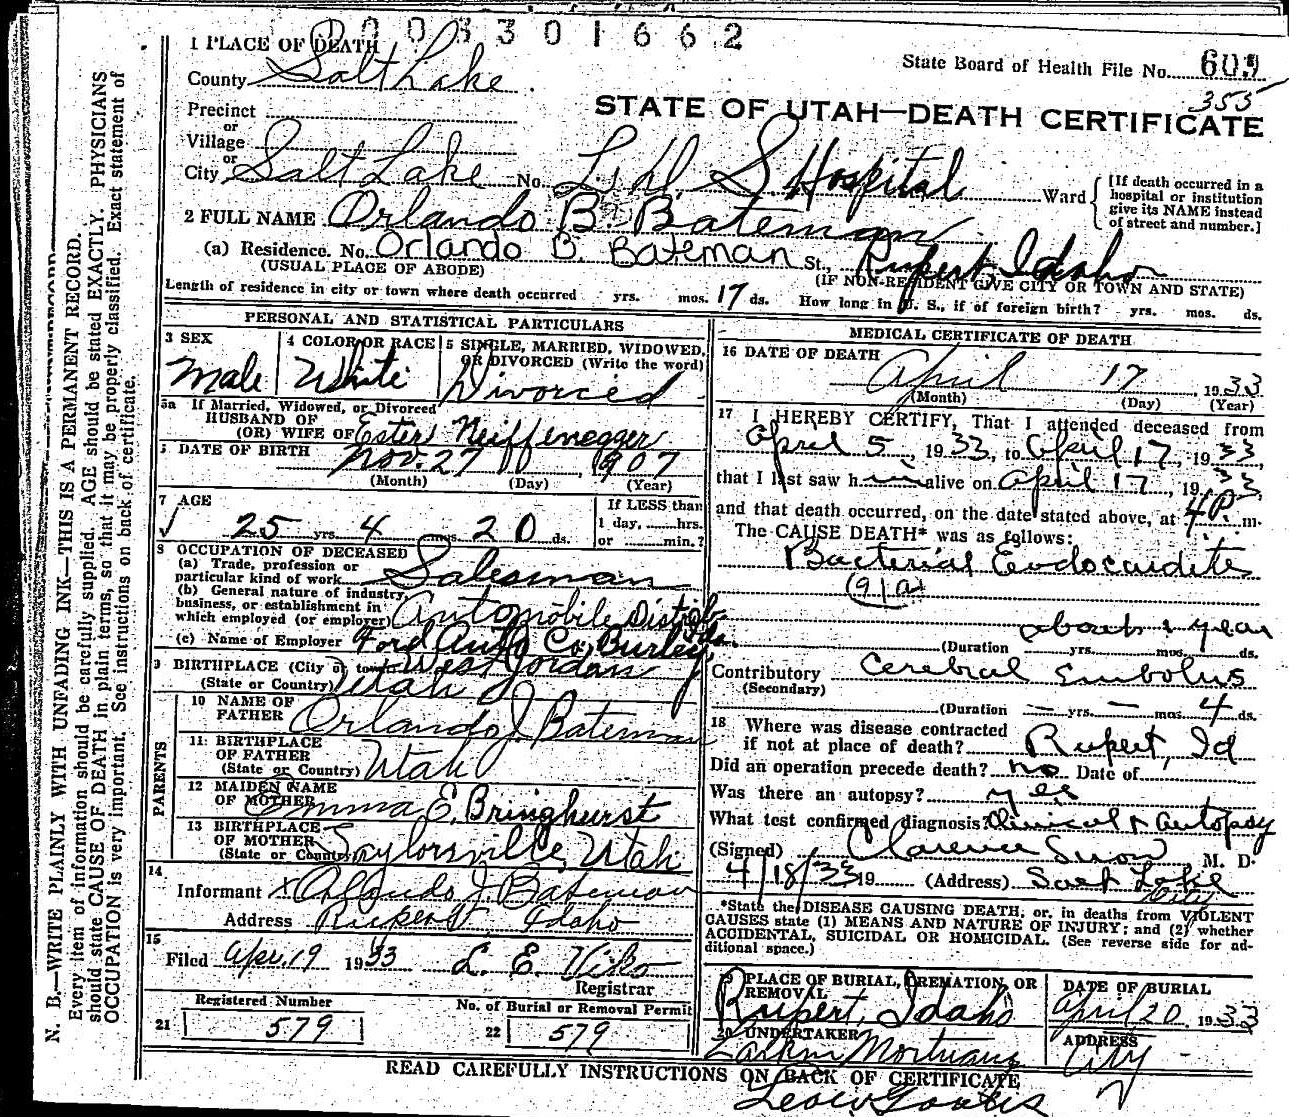 003301662
1 PLACE OF DEATH
County Salt Lake
State Board of Health File No. 609
355
STATE OF UTAH—DEATH CERTIFICATE
Precinct
or
Village
or
City Salt Lake No. L. D. S Hospital Ward
[If death occurred in a hospital or institution give its NAME instead of street and number.]
2 FULL NAME Orlando B. Bateman
(a) Residence. No. Orlando B. Bateman St., Rupert Idaho
(USUAL PLACE OF ABODE) (IF NON-RESIDENT GIVE CITY OR TOWN AND STATE)
Length of residence in city or town where death occurred yrs. mos. 17 ds. How long in U. S., if of foreign birth? yrs. mos. ds.
PERSONAL AND STATISTICAL PARTICULARS
3 SEX
Male
4 COLOR OR RACE
White
5 SINGLE, MARRIED, WIDOWED, OR DIVORCED (Write the word)
Divorced
5a If Married, Widowed, or Divorced
HUSBAND OF
(OR) WIFE OF Ester Neiffenegger
DATE OF BIRTH Nov. 27 1907
(Month) (Day) (Year)
7 AGE
25 yrs. 4 mos. 20 ds.
If LESS than
1 day, ......hrs.
or ......min.?
8 OCCUPATION OF DECEASED
(a) Trade, profession or
particular kind of work Salesman
(b) General nature of industry,
business, or establishment in
which employed (or employer) Automobile Distrib
(c) Name of Employer Ford Auto Co. Burley Ida.
9 BIRTHPLACE (City or town) West Jordan
(State or Country) Utah
PARENTS
10 NAME OF
FATHER Orlando J. Bateman
11 BIRTHPLACE
OF FATHER
(State or Country) Utah
12 MAIDEN NAME
OF MOTHER Emma E. Bringhurst
13 BIRTHPLACE
OF MOTHER
(State or Country) Taylorsville, Utah
14
Informant X Orlando J. Bateman
Address Rupert Idaho
15
Filed Apr. 19 1933 L. E. Viko
Registrar
Registered Number
21 579
No. of Burial or Removal Permit
22 579
MEDICAL CERTIFICATE OF DEATH
16 DATE OF DEATH
April 17, 1933
(Month) (Day) (Year)
17 I HEREBY CERTIFY, That I attended deceased from
April 5, 1933, to April 17, 1933,
that I last saw him alive on April 17, 1933,
and that death occurred, on the date stated above, at 4 P. m.
The CAUSE DEATH* was as follows:
Bacterial Endocarditis
(91a)
about 1 year
(Duration yrs. mos. ds.
Contributory Cerebral Embolus
(Secondary)
(Duration — yrs. — mos. 4 ds.
18 Where was disease contracted
if not at place of death? Rupert, Id
Did an operation precede death? no Date of
Was there an autopsy? yes
What test confirmed diagnosis? Clinical + Autopsy
(Signed) Clarence Snow, M. D.
4/18/33 19 (Address) Salt Lake City
*State the DISEASE CAUSING DEATH, or, in deaths from VIOLENT
CAUSES state (1) MEANS AND NATURE OF INJURY; and (2) whether
ACCIDENTAL, SUICIDAL OR HOMICIDAL. (See reverse side for ad-
ditional space.)
PLACE OF BURIAL, CREMATION, OR
REMOVAL
Rupert, Idaho
DATE OF BURIAL
April 20, 1933
20 UNDERTAKER
Larkin Mortuary
ADDRESS
City
READ CAREFULLY INSTRUCTIONS ON BACK OF CERTIFICATE
N. B.—WRITE PLAINLY WITH UNFADING INK—THIS IS A PERMANENT RECORD.
Every item of information should be carefully supplied. AGE should be stated EXACTLY. PHYSICIANS
should state CAUSE OF DEATH in plain terms, so that it may be properly classified. Exact statement of
OCCUPATION is very important. See instructions on back of certificate.